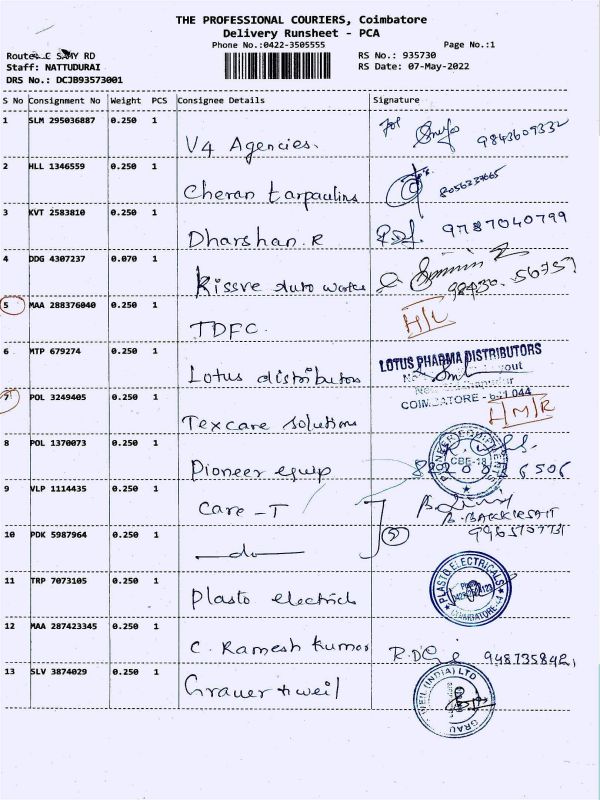 THE PROFESSIONAL COURIERS, Coimbatore
Delivery Runsheet - PCA
Phone No.:0422-3505555 Page No.:1
Route: C SAMY RD RS No.: 935730
Staff: NATTUDURAI RS Date: 07-May-2022
DRS No.: DCJB93573001
S No Consignment No Weight PCS Consignee Details Signature
1 SLM 295036887 0.250 1 V4 Agencies. for 9843609332
2 HLL 1346559 0.250 1 Cheran tarpaulins
3 KVT 2583810 0.250 1 Dharshan.R 9787040799
4 DDG 4307237 0.070 1 Kissve auto works 98430-56757
5 MAA 288376040 0.250 1 TDFC. H/L
6 MTP 679274 0.250 1 Lotus distributors LOTUS PHARMA DISTRIBUTORS
COIMBATORE - 641 044
7 POL 3249405 0.250 1 Texcare solutions HMR
8 POL 1370073 0.250 1 Pioneer equip PIONEER EQUIPMENTS CBE-18
9 VLP 1114435 0.250 1 Care-T
9965707731
10 PDK 5987964 0.250 1 do 5
11 TRP 7073105 0.250 1 Plasto electricls PLASTO ELECTRICALS COIMBATORE-44
12 MAA 287423345 0.250 1 C. Ramesh kumar
13 SLV 3874029 0.250 1 Grauer & weil GRAUER & WEIL (INDIA) LTD